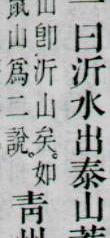 一曰沂水出泰山
山卽沂山矣。如靑
鼠山爲二說。